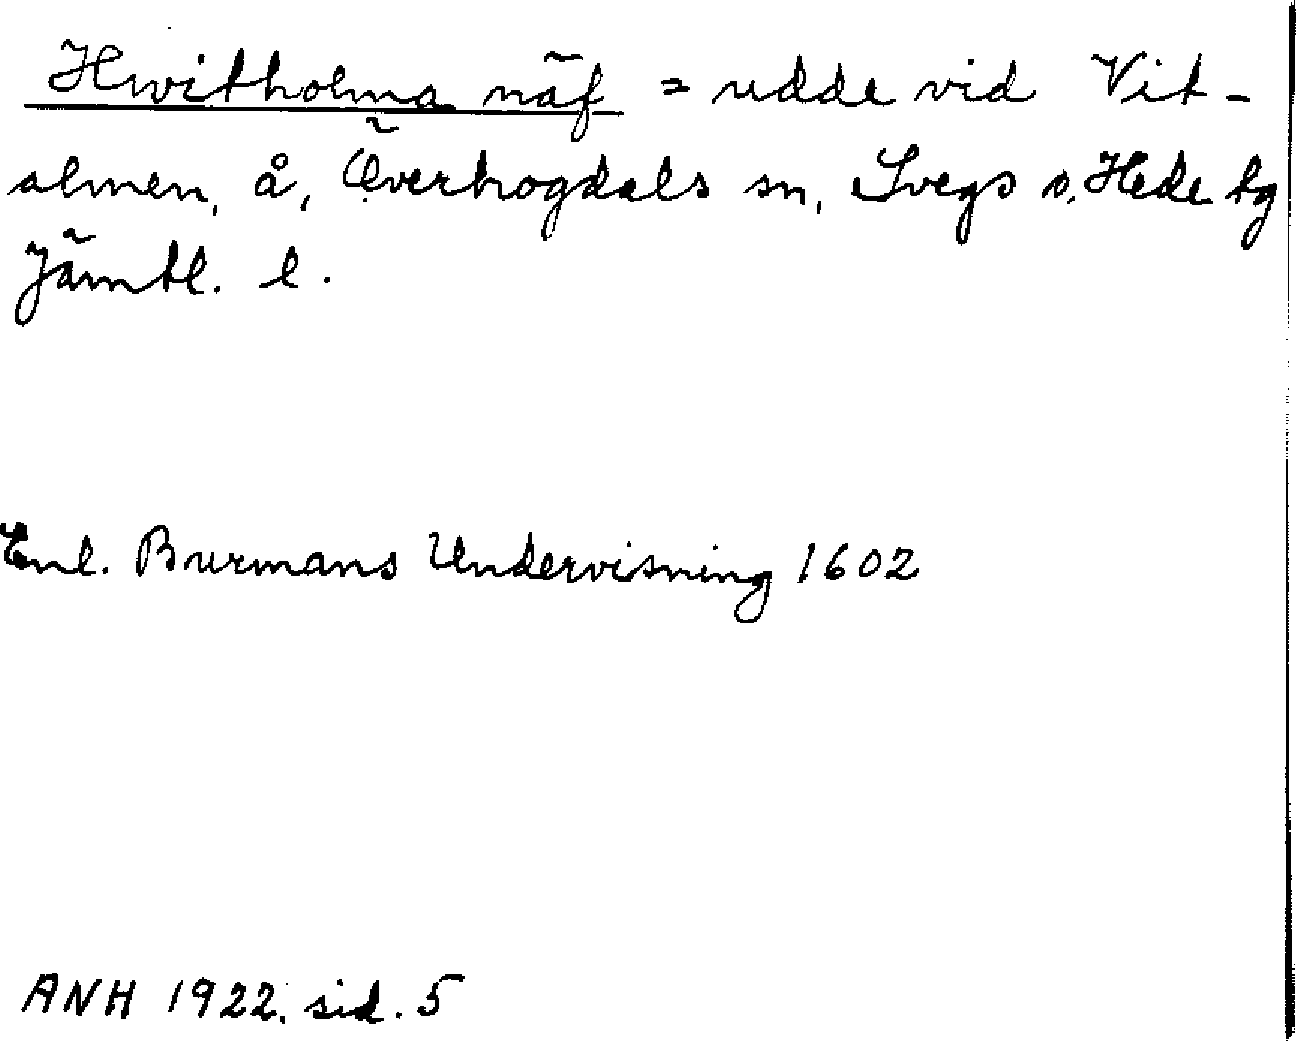 Hwitholma näf = udde vid Vit-
almen, å, Överhogdals sn, Svegs o. Hede tg
Jämtl. l.
Enl. Burmans Undervisning 1602
ANH 1922. sid. 5